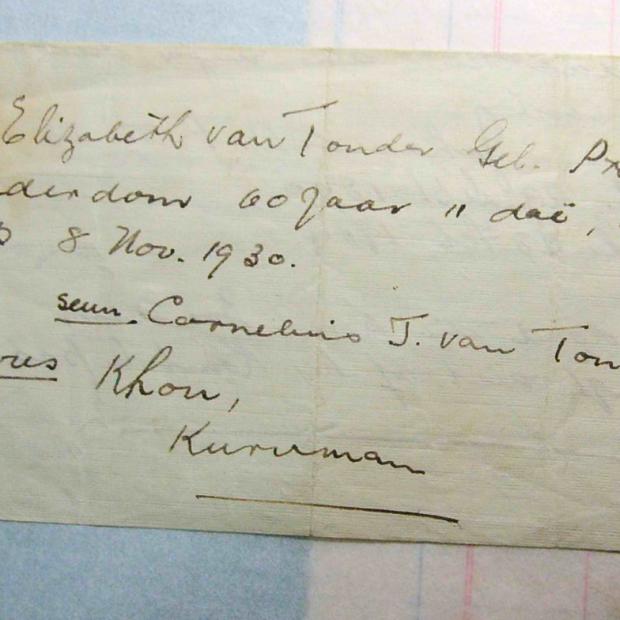 Elizabeth van Tonder Geb. Pr
derdom 60 Jaar 11 daë,
8 Nov. 1930.
seun Cornelius J. van Ton
res Khou,
Kuruman